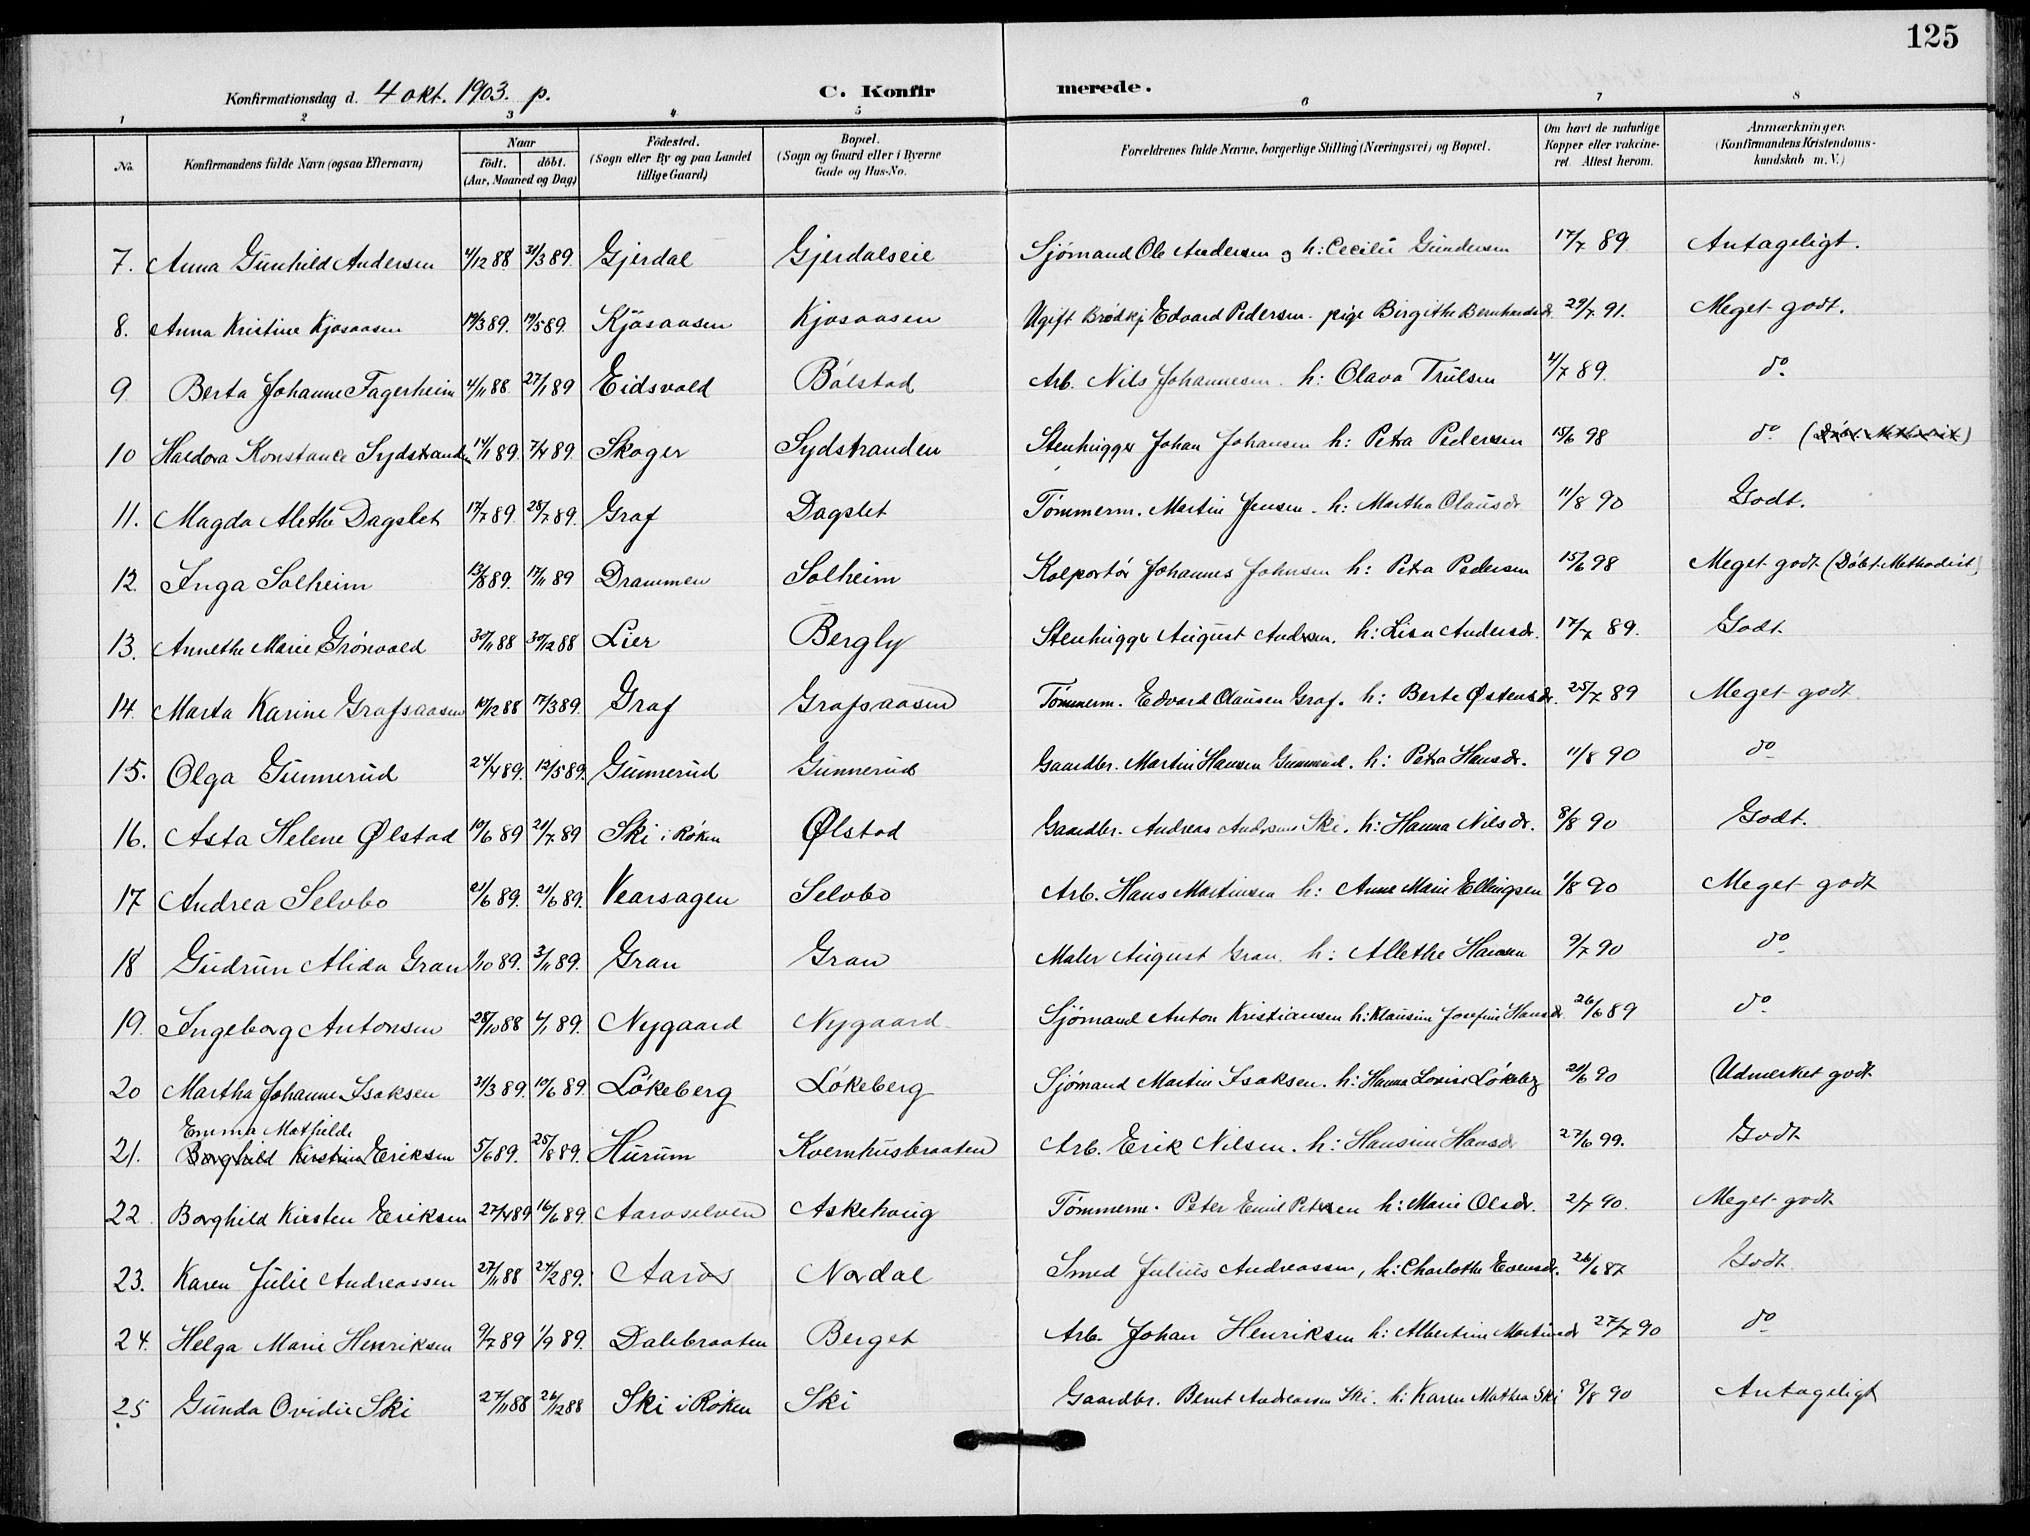 125
Konfirmationsdag d. 4 okt. 1903. p. C. Konfirmerede.
1 2 3 4 5 6 7 8
No. Konfirmandens fulde Navn (ogsaa Efternavn) Naar født. døbt. (Aar, Maaned og Dag) Födested. (Sogn eller By og paa Landet tillige Gaard) Bopæl. (Sogn og Gaard eller i Byerne Gade og Hus-No. Forældrenes fulde Navne, borgerlige Stilling (Næringsvei) og Bopæl. Om havt de naturlige Kopper eller vakcineret. Attest herom. Anmærkninger. (Konfirmandens Kristendomskundskab m. V.)
7. Anna Gunhild Andersen 4/12 88 31/3 89. Gjerdal Gjerdalseie Sjømand Ole Andersen og h: Cecilie Gundersen 17/7 89 Antageligt.
8. Anna Kristine Kjosaasen 19/3 89. 19/5 89. Kjösaasen Kjosaasen Ugift Brødkj. Edvard Pedersen. pige Birgithe Bernhardsdr. 29/7. 91. Meget godt.
9 Berta Johanne Fagerheim 4/11 88 27/1 89 Eidsvold Bölstad Arb. Nils Johannesen. h: Olava Trulsen 4/7 89. do
10 Haldora Konstance Sydstranden 14/1 89. 7/4 89. Skoger Sydstranden Stenhugger Johan Johansen h: Petra Pedersen 15/6 98 do
11. Magda Alethe Dagslet 17/7 89. 28/7 89. Graf Dagslet Tömmerm. Martin Jensen. h: Martha Olausdr. 11/8 90 Godt.
12. Inga Solheim 13/8 89. 17/11 89 Drammen Solheim Kolportör Johannes Johnsen h: Petra Pedersen 15/6 98 Meget godt (Döbt Methodist)
13. Annethe Marie Grönvold 30/11 88 30/12 88 Lier Bergly Stenhugger August Andersen. h: Lisa Andersdr. 17/7 89. Godt
14. Marta Karine Grafsaasen 10/12 88 17/3 89. Graf Grafsaasen Tömmerm. Edvard Olausen Graf. h: Berte Østensdr. 25/7 89 Meget godt
15. Olga Gunnerud 24/4 89. 12/5 89. Gunnerud Gunnerud Gaardbr. Martin Hansen Gunnerud. h: Petra Hansdr. 11/8 90 do
16. Asta Helene Ølstad 10/6 89 21/7 89 Ski i Röken Ølstad Gaardbr. Andreas Andersen Ski. h: Hanna Nilsdr. 8/8 90 Godt.
17 Andrea Selvbo 21/6 89. 21/6 89. Vearsagen Selvbo Arb. Hans Martinsen h: Anne Marie Ellingsen 1/8 90 Meget godt
18 Gudrun Alida Gran 1/10 89. 3/11 89. Gran Gran Maler August Gran. h: Allethe Hansen 9/7 90 do
19. Ingeborg Antonsen 28/10 88 6/1 89. Nygaard Nygaard Sjömand Anton Kristiansen h: Klausine Josefine Hansdr. 26/6 89 do
20 Martha Johanne Isaksen 31/3 89. 10/6 89. Lökeberg Lökeberg Sjömand Martin Isaksen. h: Hanna Lovise Lökeberg 21/6 90 Udmerket godt
Emma Mathilde
21. Borghild Kirstine Eriksen 5/6 89. 25/8 89. Hurum Kvernhusbraaten Arb. Erik Nilsen. h: Hansine Hansdr 27/6 99. Godt
22. Borghild Kirsten Eriksen 27/4 89 16/6 89. Aaroselven Askehaug Tömmerm. Peter Emil Petersen h: Marie Olsdr. 2/7 90. Meget godt
23. Karen Julie Andreassen 27/11 88 24/2 89. Aaros Nordal Smed Julius Andreassen, h: Charlotte Evensdr. 26/6 87 Godt
24. Helga Marie Henriksen 9/7 89 1/9 89. Dalebraaten Berget Arb. Johan Henriksen h: Albertine Martinsdr 27/7 90 do
25 Gunda Ovidie Ski 27/11 88 26/12 88 Ski i Röken Ski Gaardbr. Bernt Andreassen Ski. h: Karen Mathea Ski 8/8 90 Antageligt